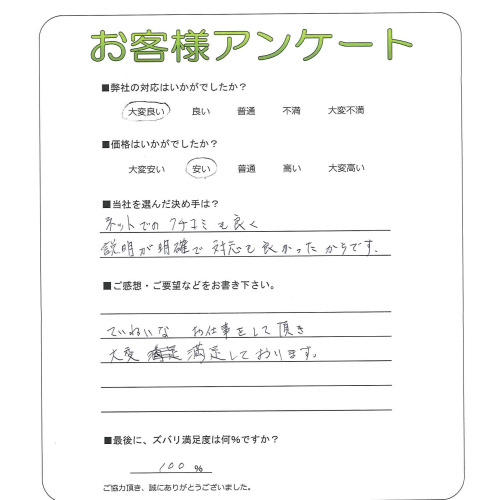 お客様アンケート
■弊社の対応はいかがでしたか？
大変良い 良い 普通 不満 大変不満
■価格はいかがでしたか？
大変安い 安い 普通 高い 大変高い
■当社を選んだ決め手は？
ネットでのクチコミも良く
説明が明確で対応も良かったからです。
■ご感想・ご要望などをお書き下さい。
ていねいな お仕事をして頂き
大変 満足しております。
■最後に、ズバリ満足度は何%ですか？
100 %
ご協力頂き、誠にありがとうございました。